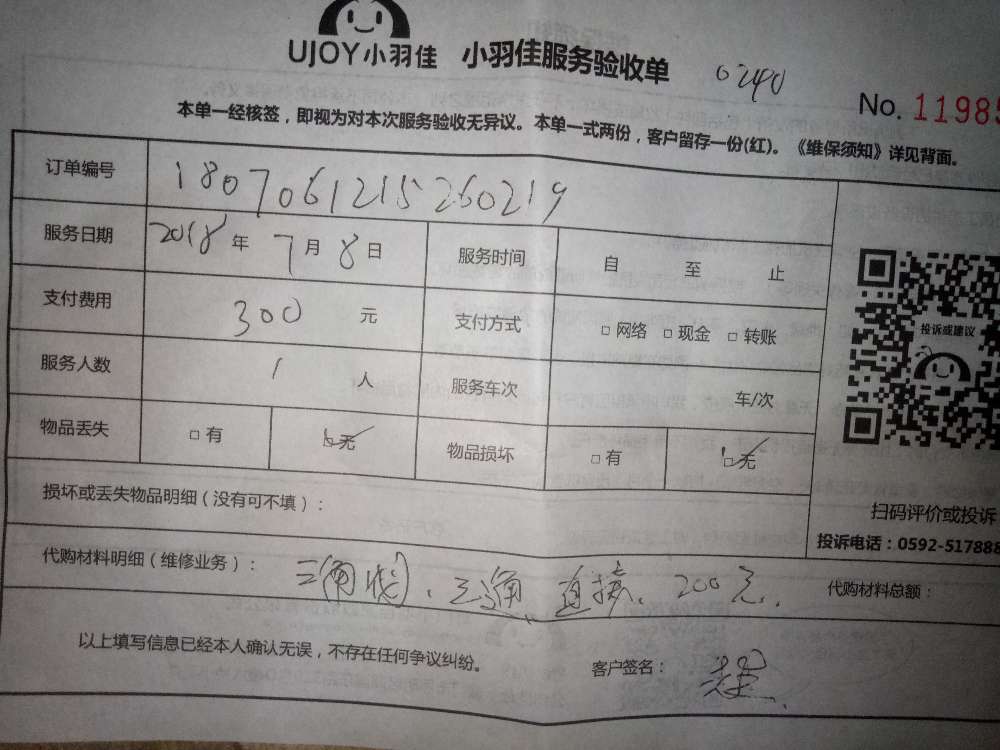 UJOY小羽佳 小羽佳服务验收单 0240
No. 11985
本单一经核签，即视为对本次服务验收无异议。本单一式两份，客户留存一份(红)。《维保须知》详见背面。
订单编号 1807061215260219
服务日期 2018年 7月 8日 服务时间 自 至 止
支付费用 300 元 支付方式 □ 网络 □ 现金 □ 转账
投诉或建议
服务人数 1 人 服务车次 车/次
物品丢失 □ 有 □ 无 物品损坏 □ 有 □ 无
损坏或丢失物品明细（没有可不填）：
扫码评价或投诉
投诉电话：0592-517888
代购材料明细（维修业务）： 三角阀、三通、直接、200元. 代购材料总额：
以上填写信息已经本人确认无误，不存在任何争议纠纷。 客户签名：